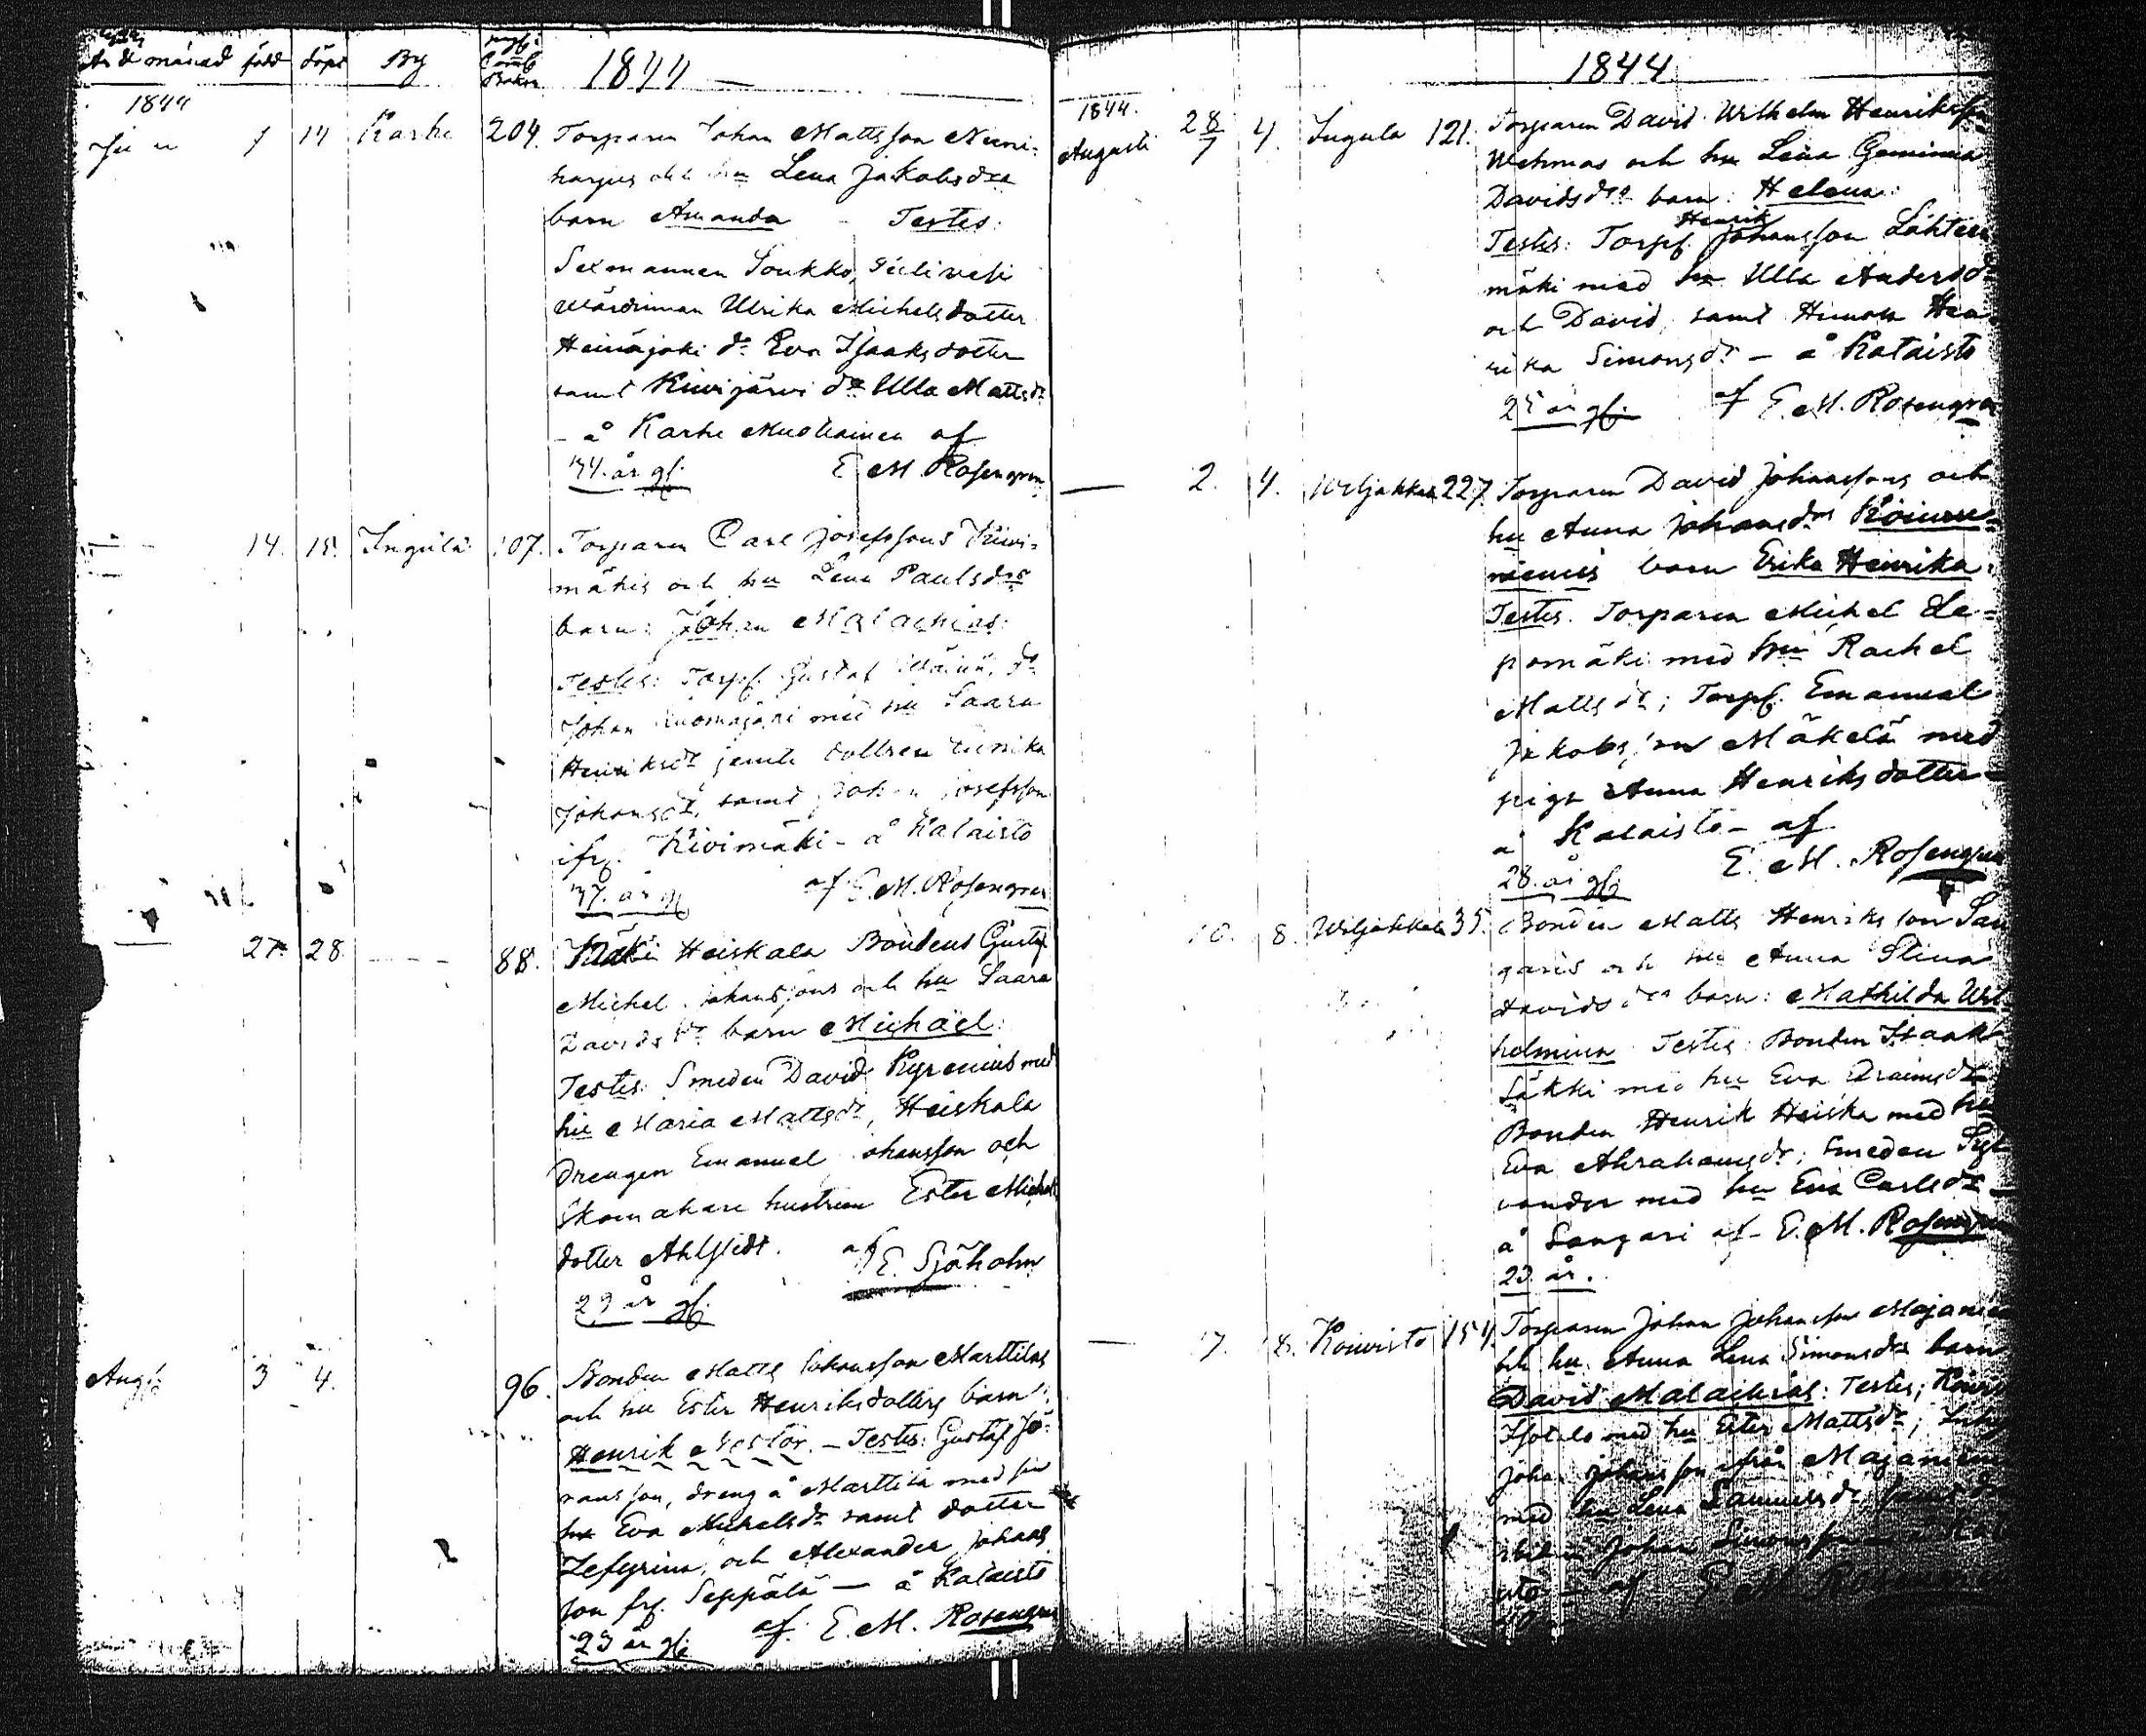 År & månad född döpt By pag. i Comb. Boken 1844
1844
1 14 Karhe 204. Torparen Johan Mattsson Nuni-
harjus och hu Lena Jakobsdrs
barn Amanda - Testes:
Sexmannen Soukko,
Wärdinnan Ulrika Michelsdotter
Heinäjoki do Eva Isaaksdotter
samt Kiwijärwi do Ulla Mattsdr
- å Karhe af
34. år gl. E. M. Rosengren
14. 15. Ingula 107. Torparen Carl Josefssons Kiwi-
mäkis och hu Lena Paulsdrs
barn: Johan Malachias:
Testes: Torpf. Gustaf
Johan med hu Saara
Henriksdr jemte dottren
Johansdr, samt Johan Josefsson
ifrå. Kivimäki - å Kalaisto
37. år gl af E. M. Rosengren
27. 28. 88. Heiskala Bondens Gustaf
Michel Johanssons och hu Saara
Davidsdrs barn Michaël:
Testes: Smeden David Kyrenius med
hu Maria Mattsdr, Heiskala
Drengen Emanuel Johansson och
Skomakare hustrun Ester Michels
dotter Ahlstedt. af E. Sjöholm
29 år gl.
Aug. 3 4. 96. Bonden Matts Johansson Marttilas
och hu Ester Henriksdotters barn:
Henrik Nestor. - Testes: Gustaf Jo-
hansson, dreng å Marttila med sin
hu Eva Michelsdr samt dotter
Zefyrina, och Alexander Johans
son frå. Seppälä - å Kalaisto
23 år gl. af. E. M. Rosengren
1844
1844.
Augusti 28/7 4. Ingula 121. Torparen David Wilhelm Henriksson
Wehmas och hu Lena Gemima
Davidsdrs barn: Helena:
Testes: Torpf. Henrik Johansson Lähteen
mäki med hu Ulla Andersdr
och David, samt Hen
rika Simonsdr - å Kalaisto
25 år gl. af E. M. Rosengren
2. 4. Wiljakkala 227. Torparen David Johanssons och
hu Anna Johansdrs Koiwu-
niemis barn Erika Henrika:
Testes: Torparen Michel Le-
pomäki med hu Rachel
Mattsdr; Torpf. Emanuel
Jakobsson Mäkelä med
piga Anna Henriksdotter -
å Kalaisto - af
28. år gl. E. M. Rosengren
8. Wiljakkala 35. Bonden Matts Henriksson San
garis och hu Anna Stina
Davidsdrs barn: Mathilda Wil
helmina Testes: Bonden Isaak
Säkki med hu Eva
Bonden Henrik Heiska med hu
Eva Abrahamsdr; Smeden Syl
vander med hu Eva Carlsdr -
å Sangari af E. M. Rosengren
23. år.
7. 8. Koivisto 154. Torparen Johan Johansson Majanie
och hu Anna Lena Simonsdrs barn
David Malachias: Testes;
Isotalo med hu Ester Mattsdr;
Johan Johansson ifrån Majaniemi
med hu Lena Samuelsdr samt
Johan Simonsson
af E. M. Rosengren